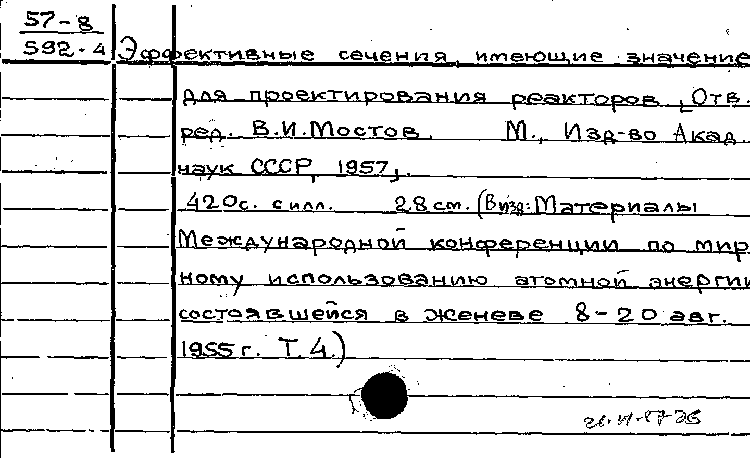 57-8
592-4 Эффективные сечения, имеющие значение
для проектирования реакторов. [Отв.
ред. В.И.Мостов. М., Изд-во Акад.
наук СССР, 1957,.
420с. с илл. 28 см. (В изд: Материалы
Международной конференции по мир
ному использованию атомной энергии
состоявшейся в Женеве 8-20 авг.
1955 г. Т. 4.)